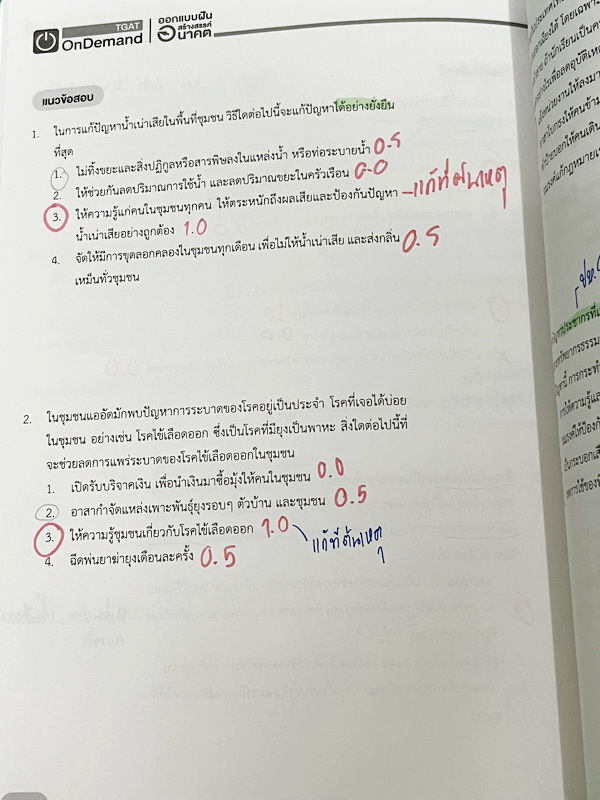 TGAT
OnDemand
ออกแบบฝัน
สร้างสรรค์
อนาคต
แนวข้อสอบ
1. ในการแก้ปัญหาน้ำเน่าเสียในพื้นที่ชุมชน วิธีใดต่อไปนี้จะแก้ปัญหาได้อย่างยั่งยืน
ที่สุด
1. ไม่ทิ้งขยะและสิ่งปฏิกูลหรือสารพิษลงในแหล่งน้ำ หรือท่อระบายน้ำ 0.5
2. ให้ช่วยกันลดปริมาณการใช้น้ำ และลดปริมาณขยะในครัวเรือน 0.0
3. ให้ความรู้แก่คนในชุมชนทุกคน ให้ตระหนักถึงผลเสียและป้องกันปัญหา - แก้ที่ต้นเหตุ
น้ำเน่าเสียอย่างถูกต้อง 1.0
4. จัดให้มีการขุดลอกคลองในชุมชนทุกเดือน เพื่อไม่ให้น้ำเน่าเสีย และส่งกลิ่น 0.5
เหม็นทั่วชุมชน
2. ในชุมชนแออัดมักพบปัญหาการระบาดของโรคอยู่เป็นประจำ โรคที่เจอได้บ่อย
ในชุมชน อย่างเช่น โรคไข้เลือดออก ซึ่งเป็นโรคที่มียุงเป็นพาหะ สิ่งใดต่อไปนี้ที่
จะช่วยลดการแพร่ระบาดของโรคไข้เลือดออกในชุมชน
1. เปิดรับบริจาคเงิน เพื่อนำเงินมาซื้อมุ้งให้คนในชุมชน 0.0
2. อาสากำจัดแหล่งเพาะพันธุ์ยุงรอบๆ ตัวบ้าน และชุมชน 0.5
3. ให้ความรู้ชุมชนเกี่ยวกับโรคไข้เลือดออก 1.0
แก้ที่ต้นเหตุ
4. ฉีดพ่นยาฆ่ายุงเดือนละครั้ง 0.5